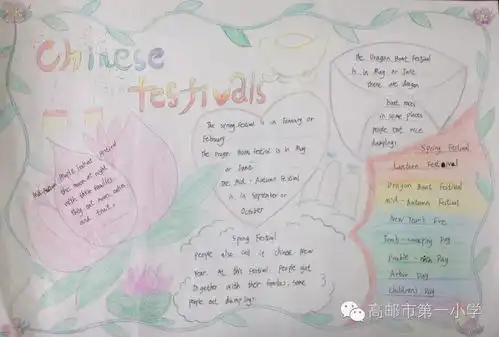 Chinese
festivals
The Dragon Boat Festival
is in May or June
there are dragon
boat races
in some places
people eat rice
dumplings
The Spring Festival is in January or
February
The Dragon Boat Festival is in May
or June
The Mid-Autumn Festival
is in September or
October
the moon at night
with their families
they eat moon cakes
and fruit.
Spring Festival
people also call it Chinese New
Year. At this festival people get
together with their families. some
people eat dumplings
Spring Festival
Lantern Festival
Dragon Boat Festival
Mid-Autumn Festival
New Year's Eve
Tomb-sweeping Day
Double-Ninth Day
Arbor Day
Children's Day
高邮市第一小学